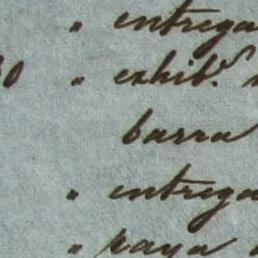 " entrega
30 " exhib.º
barra
" entrega
" paga